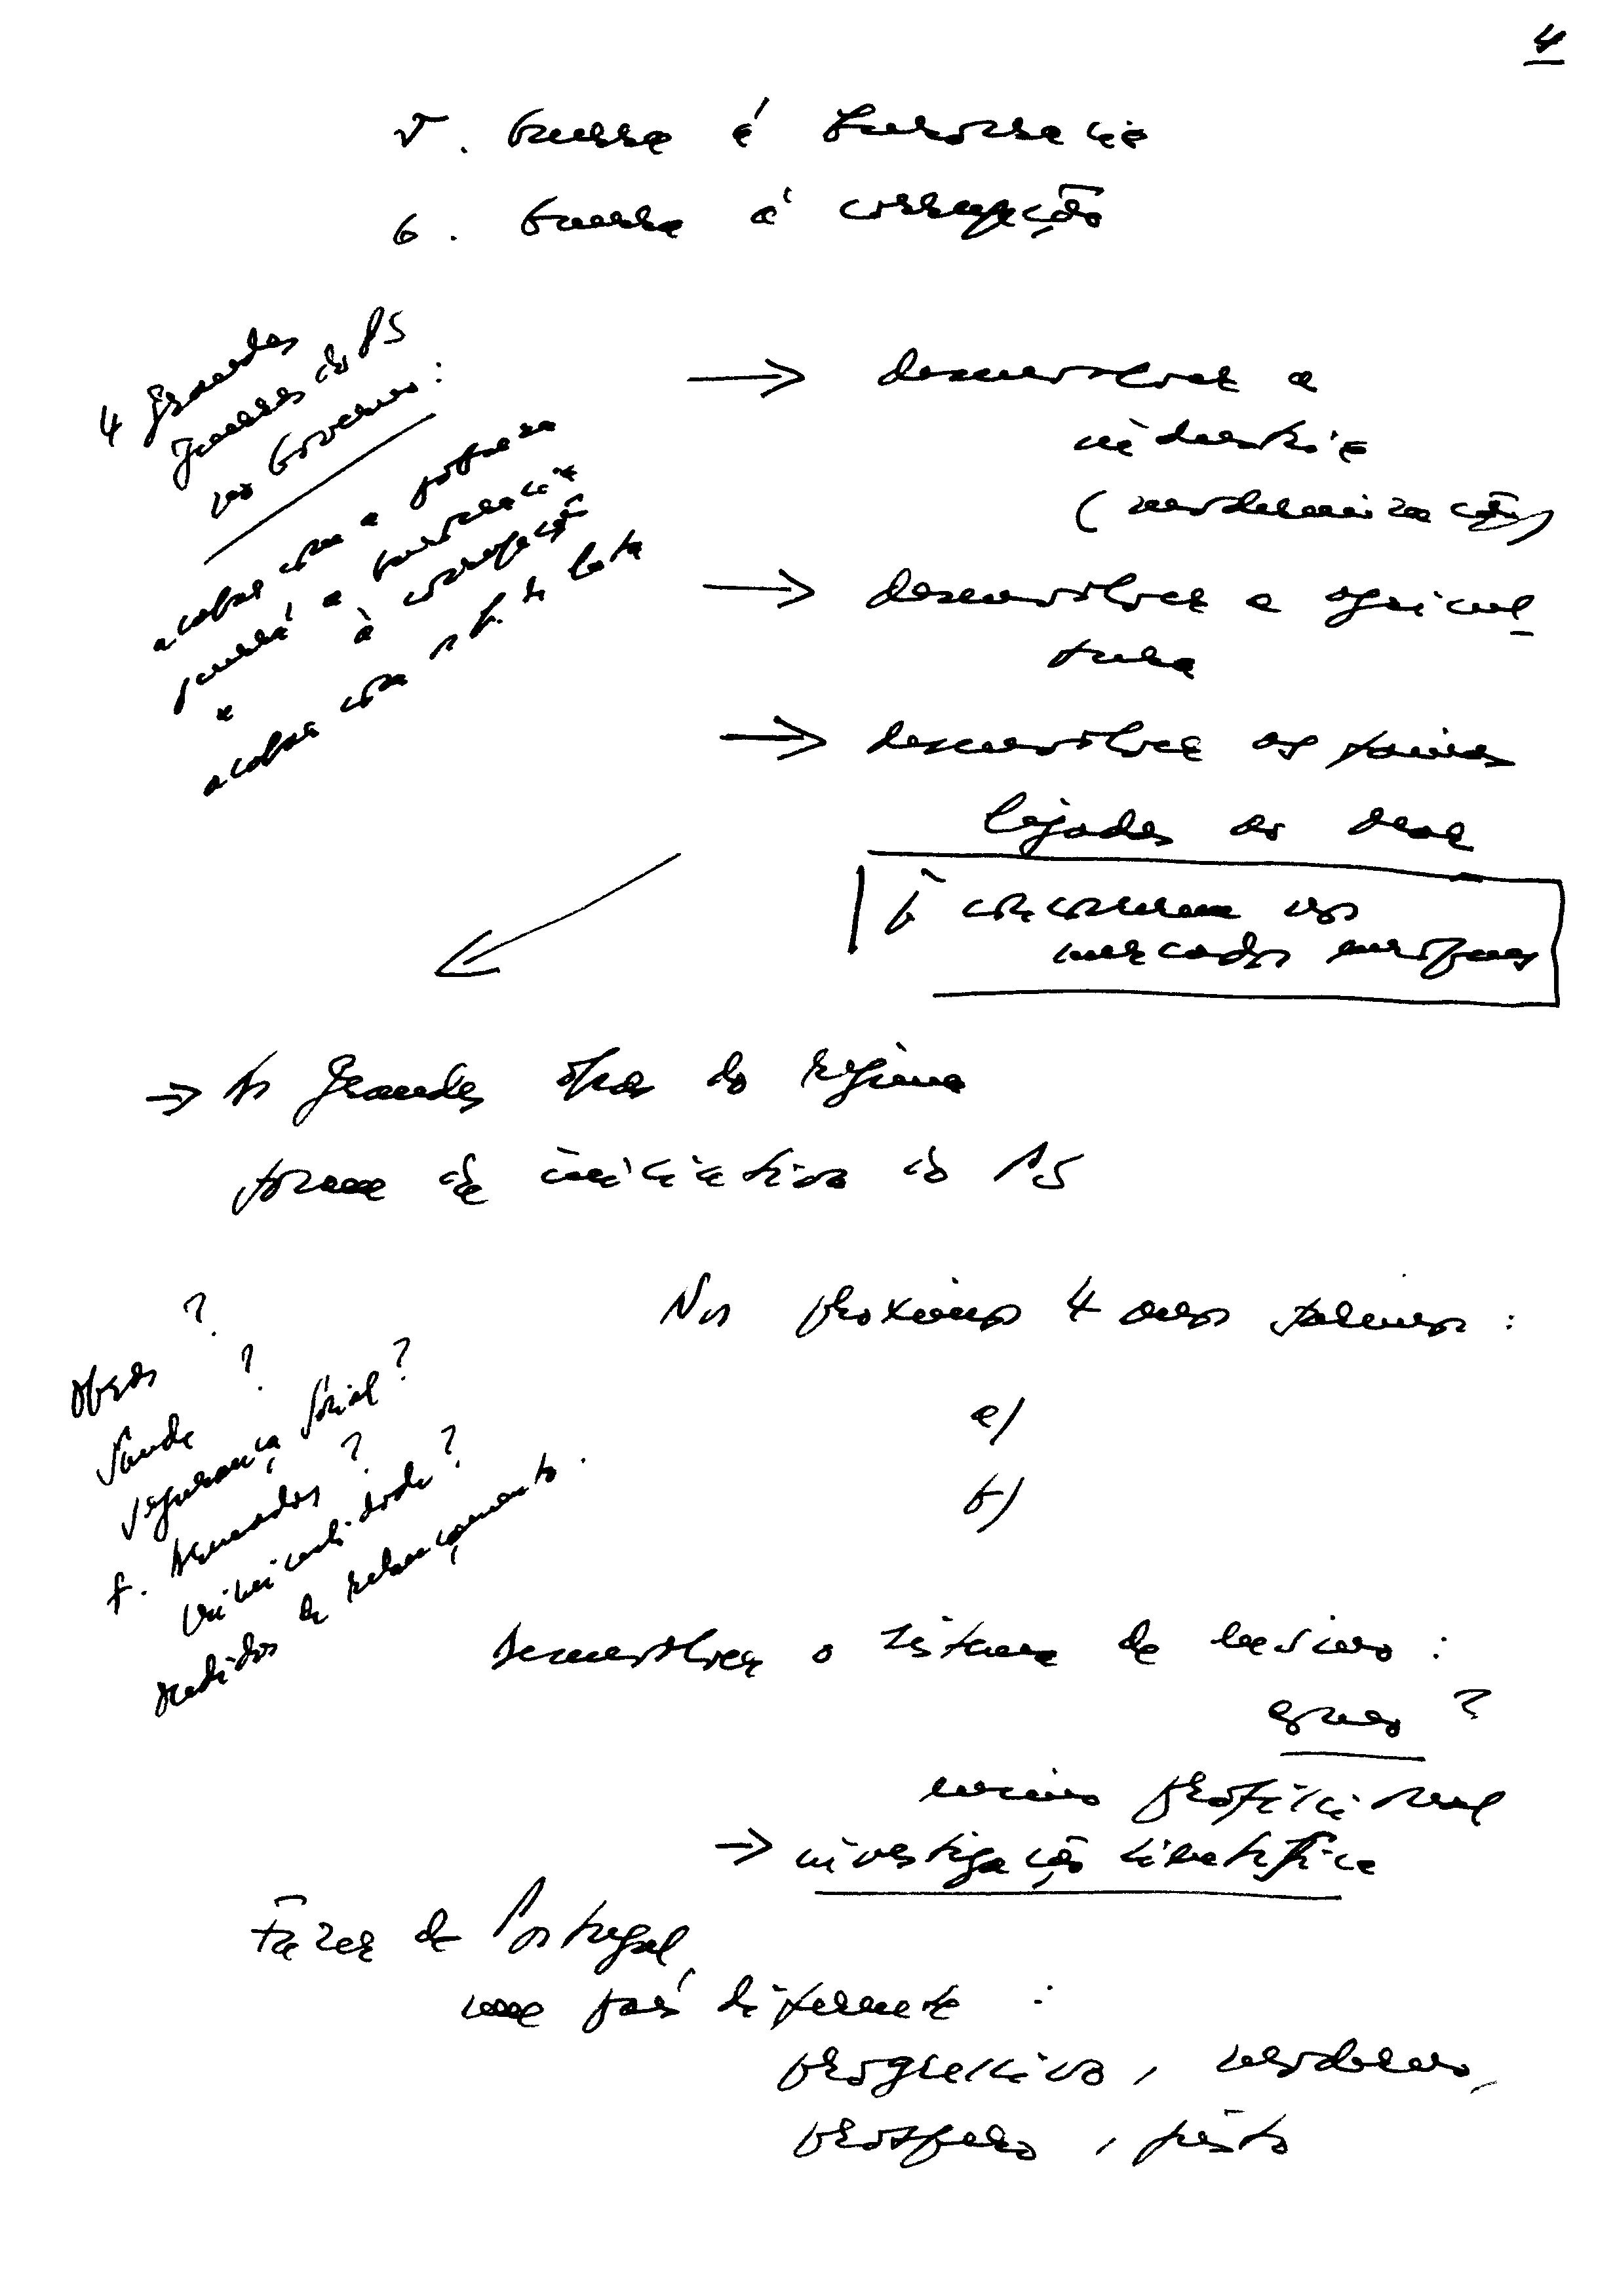 4
5. Guerra à burocracia
6. Guerra à corrupção
4 grandes
guerras do PS
no Governo:
acabar com a pobreza
guerra à burocracia
e à corrupção
acabar com os b. de lata
→ desenvolver a
indústria
(modernização)
→ desenvolver a agricul
tura
→ desenvolver as
ligadas ao mar
concorrem nos
mercados europeus
→ As grandes obras do regime
foram de iniciativa do PS
Nos próximos 4 anos faremos:
a)
b)
Obras ?
Saúde ?
Segurança Social ?
F. Armadas ?
Criminalidade ?
Medidas de relançamento.
Desenvolver o sistema de ensino:
como ?
ensino profissional
→ investigação científica
Fazer de Portugal
um país diferente :
progressivo, moderno,
próspero, justo